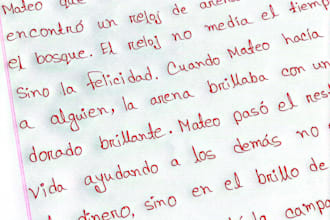 Mateo que
encontró un reloj de aren
el bosque. El reloj no media el tiemp
Sino la felicidad. Cuando Mateo hacía
a alguien, la arena brillaba con un
dorado brillante. Mateo pasó el res
vida ayudando a los demás no
dinero, sino en el brillo de
la campa